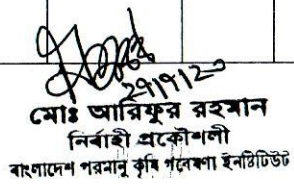 ২৭/৭/২০
মোঃ আরিফুর রহমান
নির্বাহী প্রকৌশলী
বাংলাদেশ পরমাণু কৃষি গবেষণা ইনষ্টিটিউট